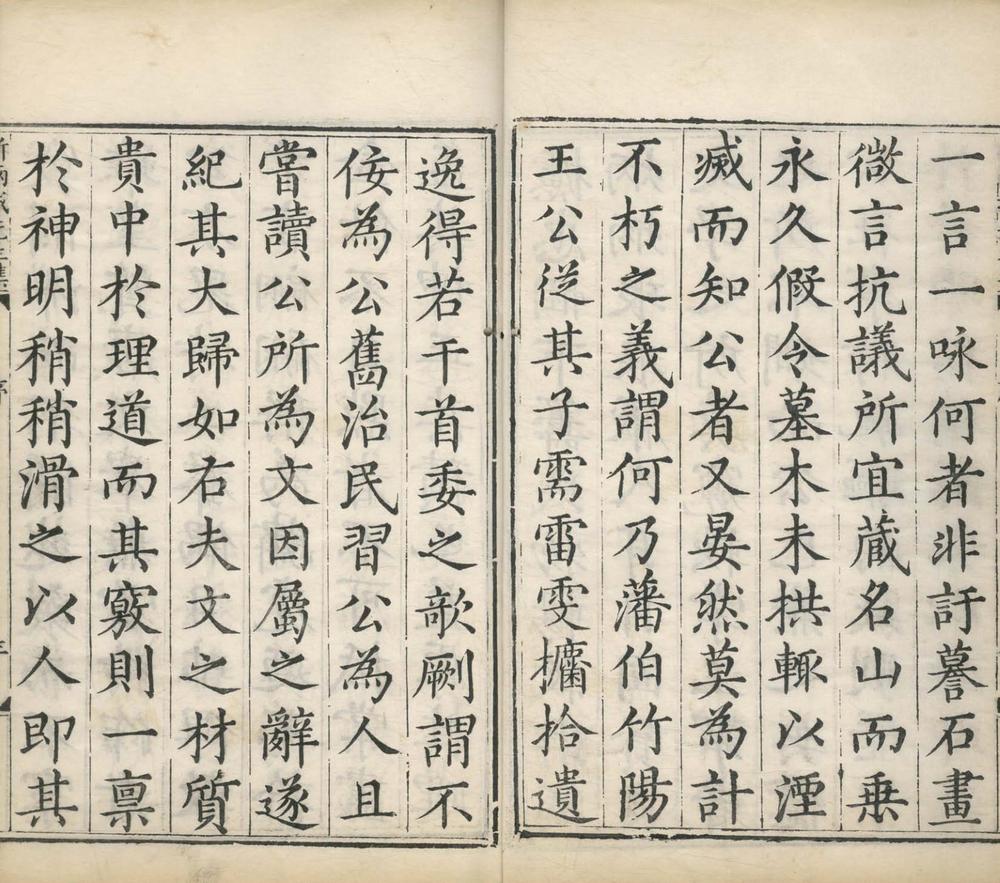 一言一咏何者非訏謩石畫
微言抗議所宜蔵名山而乗
永久假令墓木未拱輙以湮
滅而知公者又晏然莫為計
不朽之義謂何乃藩伯竹陽
王公従其子需雷雯攟拾遺
逸得若干首委之欹劂謂不
佞為公舊治民習公為人且
嘗讀公所為文因屬之辭遂
紀其大歸如右夫文之材質
貴中於理道而其竅則一禀
於神明稍稍滑之以人即其
序
三